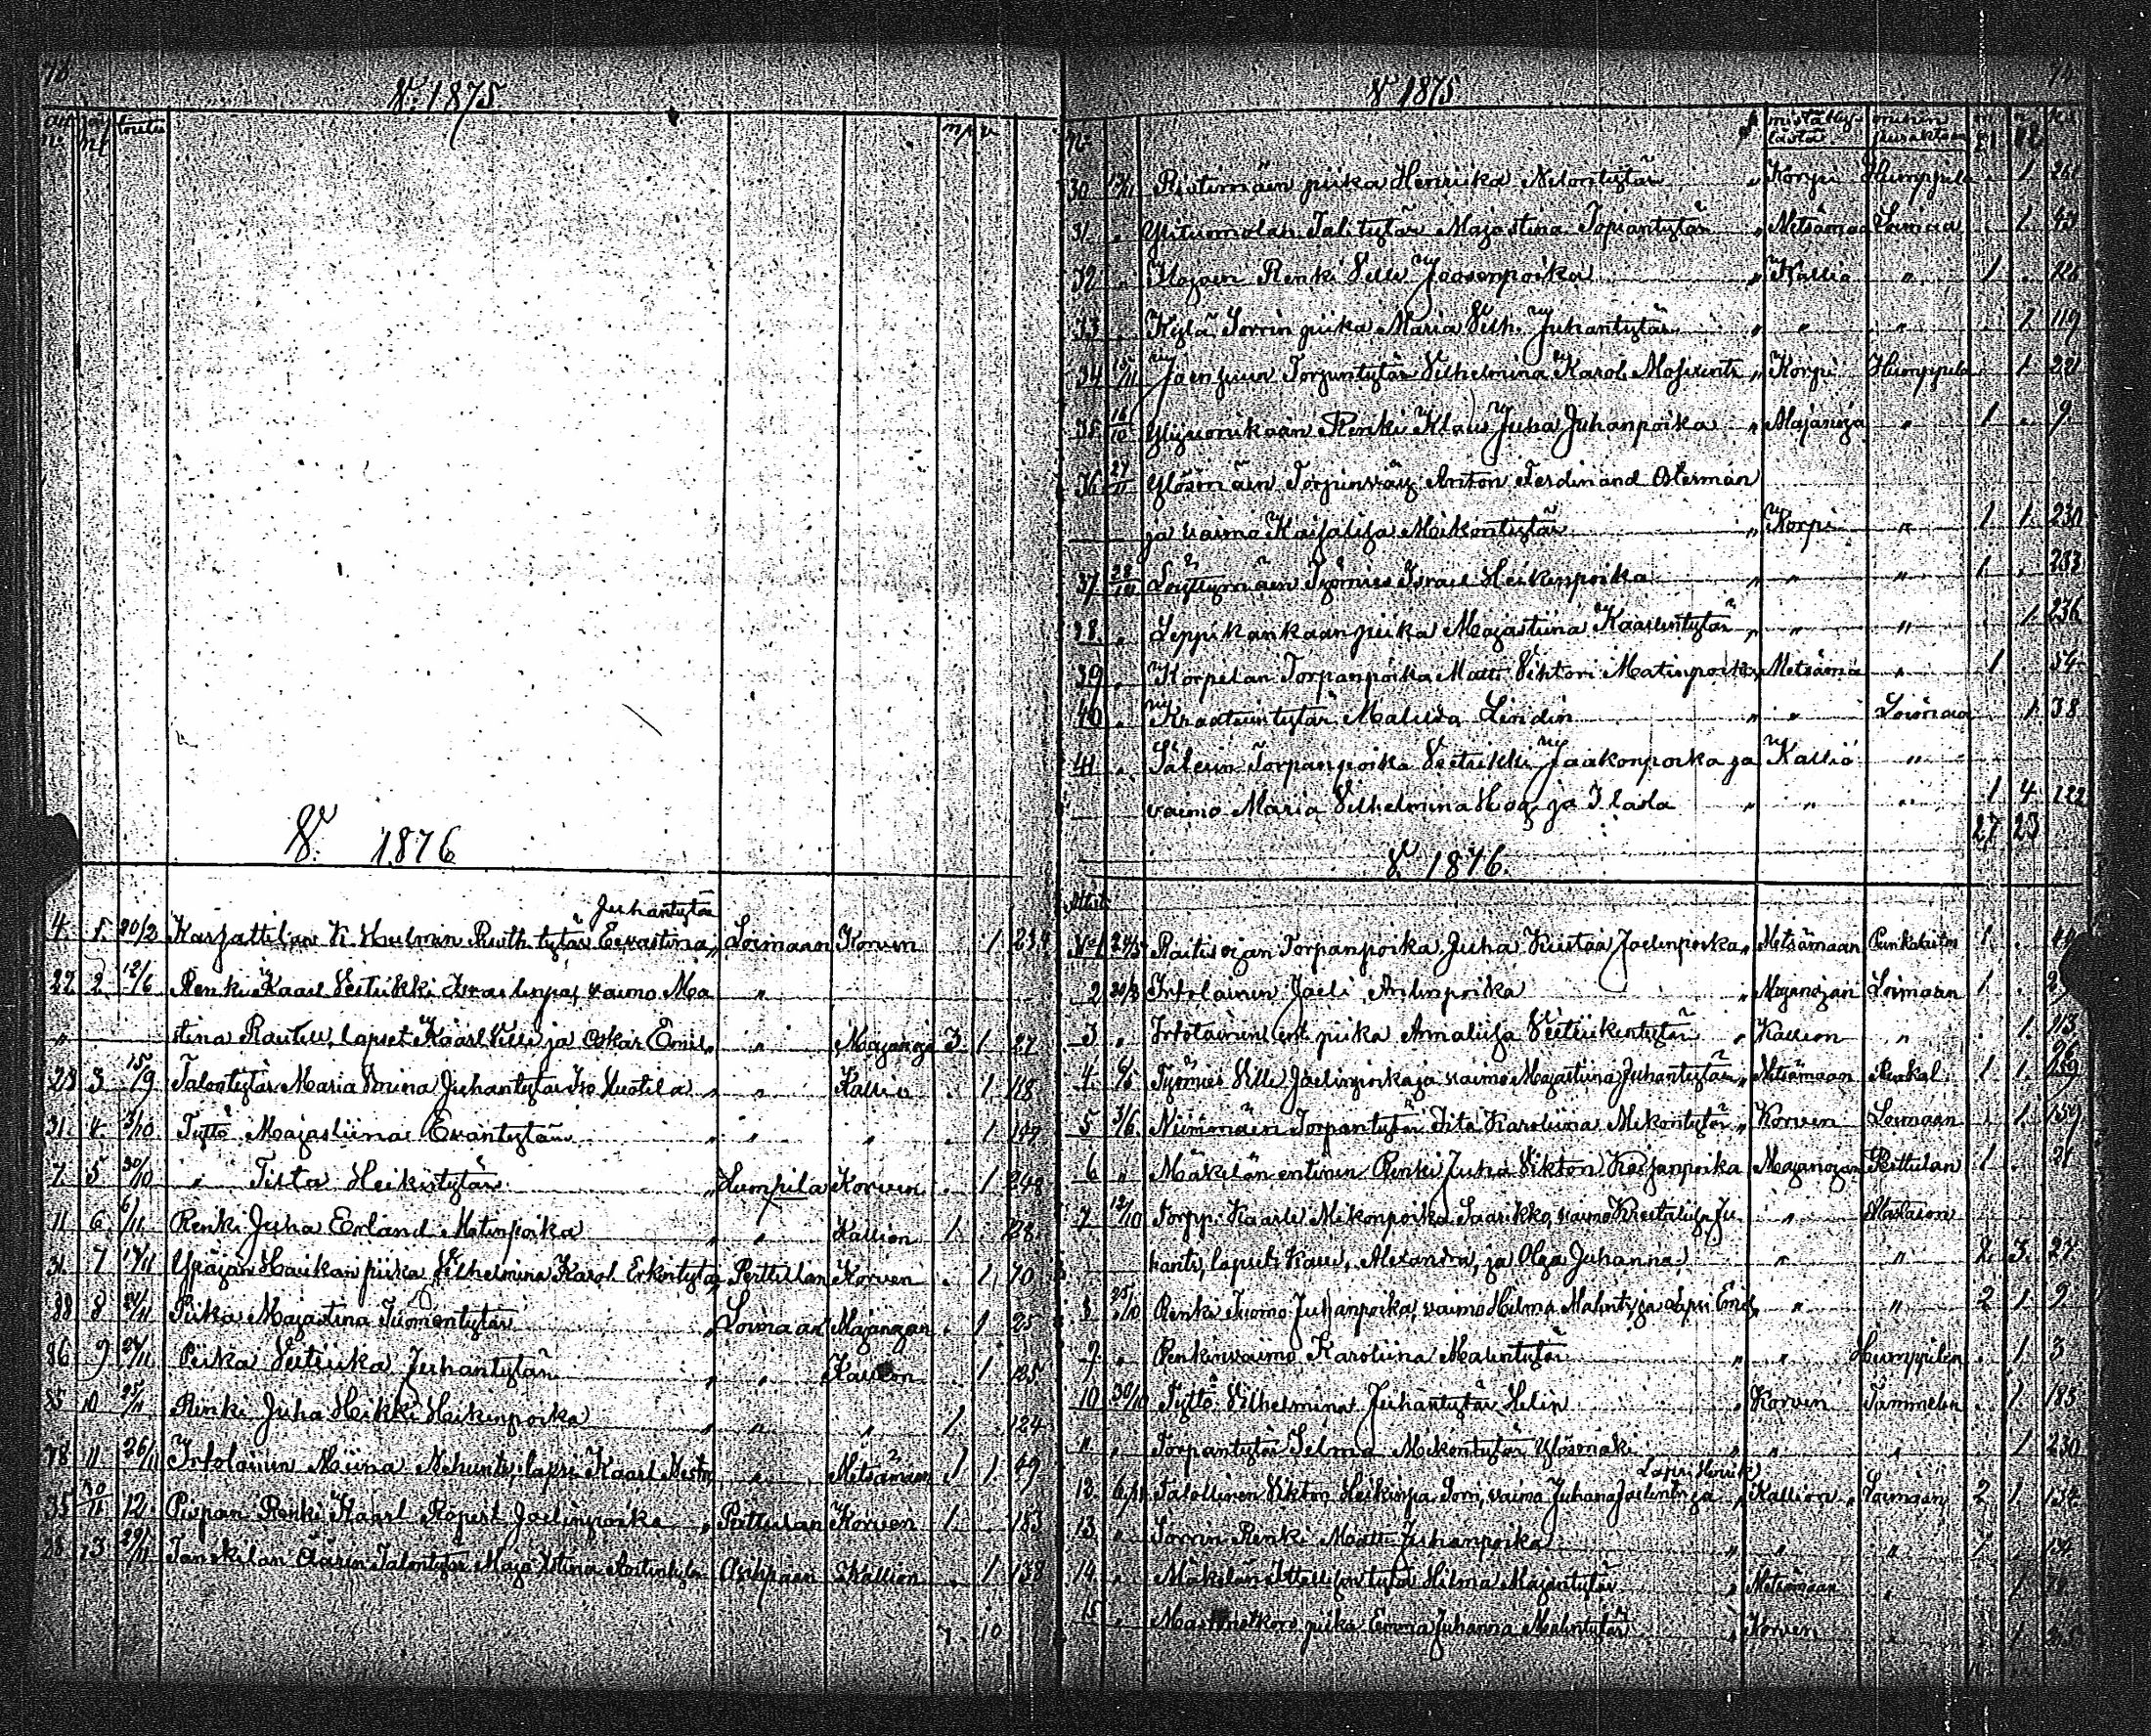 V. 1875
m.p. v.
V. 1876
Juhantytär
4. 1. 20/2 Karjattilan K. Helmin Ruth. tytär Eevastina " Loimaan Korven 1 234
22 2 12/6 Renki Kaarl Veetrikki Israelinpoi, vaimo Ma "
" stina Rautell, lapset Kaarl Ville ja Oskar Emil " " Majanoja 3 1 27
28 3 15/9 Talontytär Maria Lovina Juhantytär Iso Uotila " " Kallio . 1 118
31. 4. 3/10 Tyttö Majastiina Eevantytär " " " . 1 199
7. 5 30/10 " Tiita Heikintytär " Humpila Korven . 1 248
11 6 6/11 Renki Juha Erland Matinpoika " " Kallion 1. . 128
31. 7 14/11 Ypäjän Haukan piika Vilhelmina Karol. Erkintytär " Perttulan Korven . 1 70
38 8 24/11 Piika Majastina Tuomontytär " Loimaan Majanojan . 1 25
36 9 24/11 Piika Veetriika Juhantytär " " Kallion . 1 125
35 10 25/11 Renki Juha Heikki Heikinpoika " " " 1 . 124
78 11. 26/11 Irtolainen Miina Nehunts, lapsi Kaarl Nestor " Metsämaan 1 1. 49
35 30/11 12. Piispan Renki Kaarl Ropert Joelinpoika " Perttulan Korven 1. . 153
28 13 29/11 Tanskilan Talontytär Maja Stina Anttintytär Kallion . 1 138
7. 10
V. 1875
n:o mistä kylästä mihin pitäjään
30 12/11 Ristimäen piika Henriika Nilontytär " Korpi Humppila . 1. 261
31. " Ylituomolan Talitytär Majastina Topiantytär " Metsämaa Loimaa . 1. 43
32 " Ylojoen Renki Ville Joosenpoika " Kallio " 1 . 126
33 " Kylä Sorrin piika Maria Vilh. Juhantytär " " " . 1 119
34 15/11 Jaenjuun Torpuntytär Vilhelmina Karol. " Korpi Humppila . 1. 221
35. 16/10 Ylijuonikaan Renki Klaus Juha Juhanpoika " Majanoja " 1 . 9.
36 27/11 Ylösmäen Torpinväij Anton Ferdinand Osterman
ja vaimo Kaisaliisa Mikontytär " Korpi " 1 1. 230
37 28/10 Löyttymäen Työmies Israel Heikinpoika " " " 1. . 233
38. " Leppikankaan piika Majastiina Kaarlentytär " " " . 1. 236
39 " Korpelan Torpanpoika Matti Viktori Matinpoika " Metsämaa " 1 . 54
40 " Kraatarintytär Matilda Lindin " " Loimaa . 1. 38
41 " Sälliin Torpanpoika Veetrikki Jaakonpoika ja Kallio "
vaimo Maria Vilhelmina Heog. ja 3 lasta " " " 1 4 122
27 23
V. 1876.
N:o 1 24/3 Raitis ojan Torpanpoika Juha Kustaa Joelinpoika " Metsämaan Punkalaitu 1. . 44
2 26/3 Irtolainen Joeli Antinpoika " Majanojan Loimaan 1 . 2
3 " Irtolainen ent. piika Amaliisa Veetrikintytär " Kallion " . 1. 113
4. 6/5 Työmies Ville Joelinpoika ja vaimo Majastiina Juhantytär " Metsämaan Punkal. 1. 1. 26 259
5 3/6. Niinimäen Torpantytär Iita Karoliina Mikontytär " Korven Loimaan . 1. 159
6 " Mäkelän entinen Renki Juha Viktori Kaijanpoika Majanojan Perttulan 1 . 21
7. 12/10 Torpp. Kaarle Mikonpoika Saarikko, vaimo Kreetaliisa Ju " Mattaron
hants, lapset: Kalle, Alexandra, ja Olga Juhanna " " 2. 3. 27.
8. 25/10 Renki Tuomo Juhanpoika, vaimo Helma Malints ja lapsi Emil " " " 2 1. 9.
9. " Renkinvaimo Karoliina Malintytär " " Humppilan . 1. 3
10 30/10 Tyttö Vilhelmina Juhantytär Helin " Korven Tammelan . 1. 183
" " Torpantytär Selma Mikontytär Ylösmäki " " " . 1 230
Lapsi Henrik
12. 6/11 Talollinen Viktor Heikinpoi. Sorri, vaimo Juhana Joelints ja " Kallion " Loimaan 2 1. 134.
13. " Sorrin Renki Matti Juhanpoika " " " 1 . 134
14 " Mäkelän tytär Hilma Majantytär " Metsämaan " . 1 76
15 " piika Emma Juhanna Malintytär " Korven " . 1.